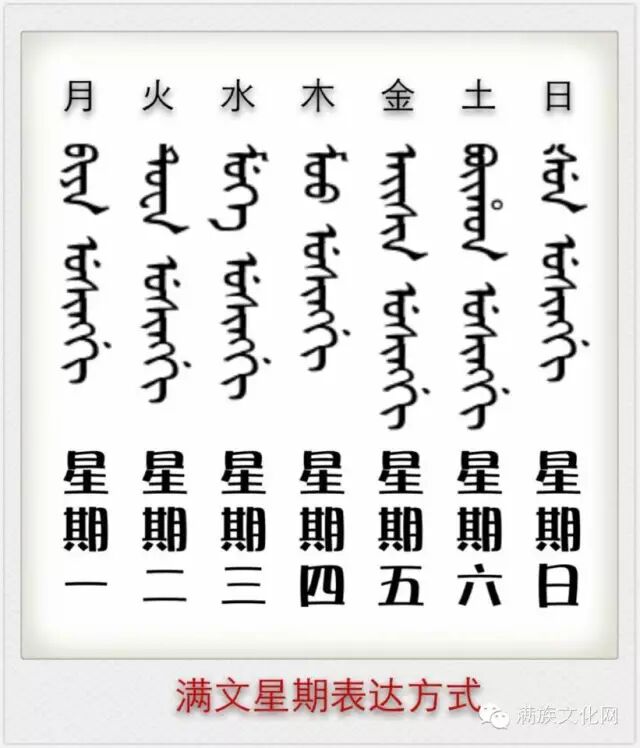 月 火 水 木 金 土 日
ᠪᡳᠶᠠ
ᡨᡠᠸᠠ
ᠮᡠᡴᡝ
ᠮᠣᠣ
ᠠᡳᠰᡳᠨ
ᠪᠣᡳᡥᠣᠨ
ᡧᡠᠨ
星期一
星期二
星期三
星期四
星期五
星期六
星期日
满文星期表达方式
满族文化网